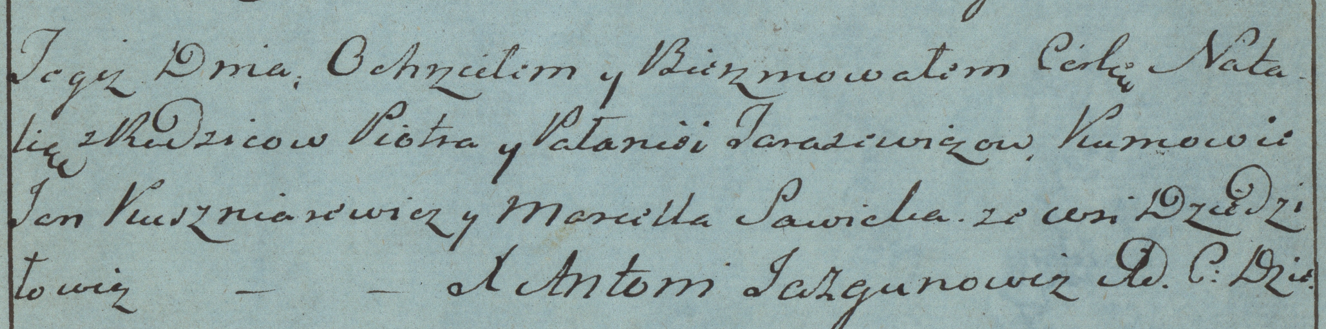 Tegiz Dnia, Ochrzciłem y Bierzmowałem Córkę Nata-
lię z Rodzicow Piotra y Pałanii Tarasewiczow, Kumowie
Jan Kuszniarewicz y Marcella Sawicka. ze wsi Dziedzi
łowicz — — X Antoni Jazgunowicz P. C: Dzie.